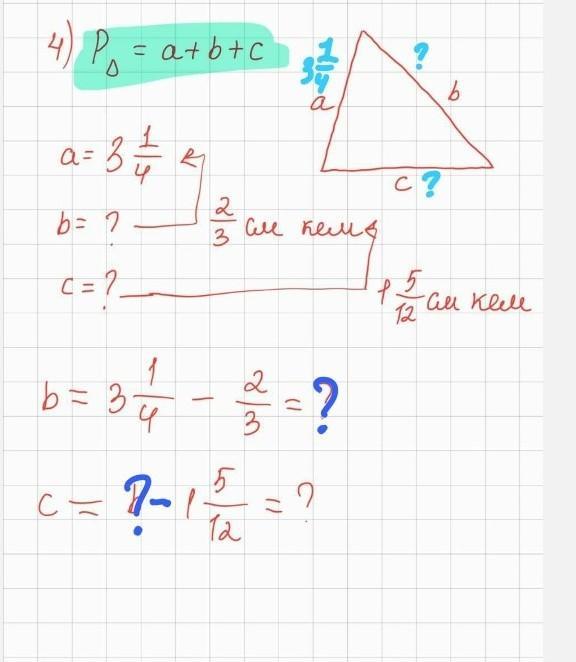 4) P△ = a+b+c
3 1/4
?
a
b
c ?
a= 3 1/4
b= ? 2/3 см кем
c=? 1 5/12 см кем
b = 3 1/4 - 2/3 = ?
c = ?- 1 5/12 = ?